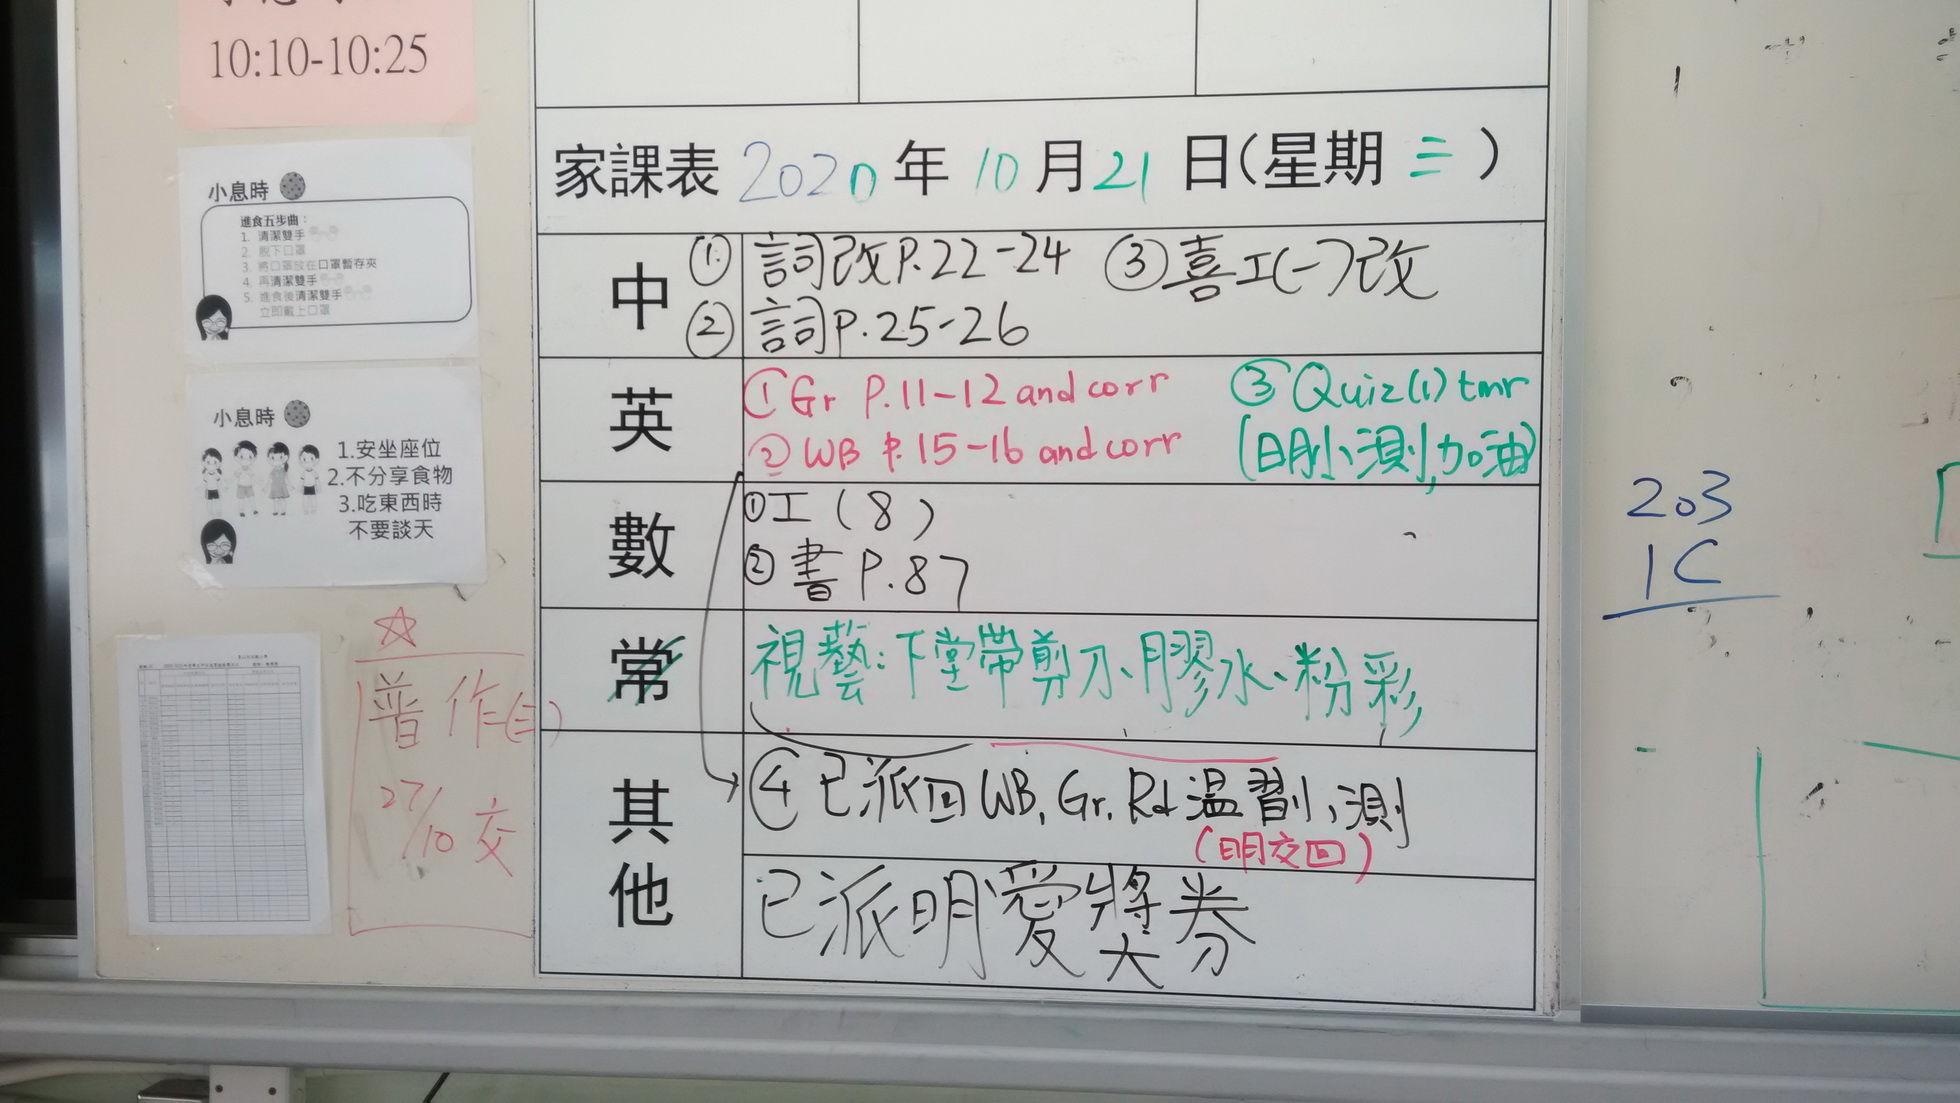 10:10-10:25
小息時
進食五步曲：
1. 清潔雙手
2. 脫下口罩
3. 將口罩放在口罩暫存夾
4. 再清潔雙手
5. 進食後清潔雙手
立即戴上口罩
小息時
1.安坐座位
2.不分享食物
3.吃東西時
不要談天
普作(三)
27/10 交
家課表 2020 年 10 月 21 日(星期 三)
中
① 詞改P.22-24 ③喜工(一)改
② 詞P.25-26
英
①Gr P.11-12 and corr ③ Quiz(1) tmr
②WB P.15-16 and corr (明小測,加油)
數
①工(8)
②書 P.87
常
視藝:下堂帶剪刀、膠水、粉彩
其他
④已派回WB, Gr, Rd 溫習小測
(明交回)
已派明愛獎券
203
1C